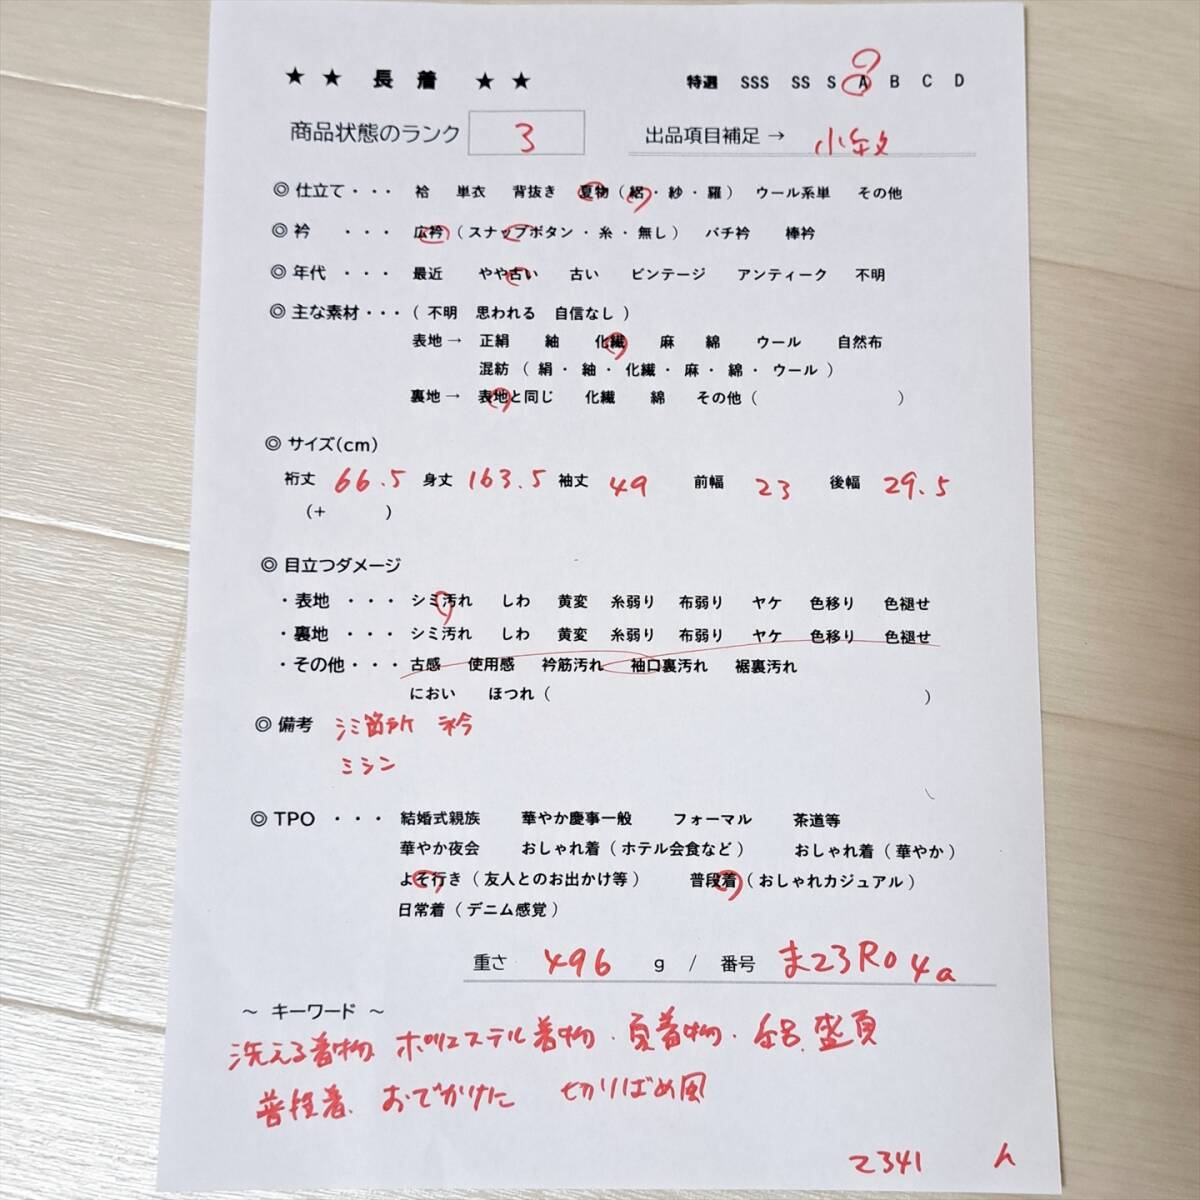 ★ ★ 長 着 ★ ★ 特選 SSS SS S A B C D
商品状態のランク 3 出品項目補足 → 小紋
◎ 仕立て ・・・ 袷 単衣 背抜き 夏物 ( 絽 ・ 紗 ・ 羅 ) ウール系単 その他
◎ 衿 ・・・ 広衿 ( スナップボタン ・ 糸 ・ 無し ) バチ衿 棒衿
◎ 年代 ・・・ 最近 やや古い 古い ビンテージ アンティーク 不明
◎ 主な素材・・・ ( 不明 思われる 自信なし )
表地 → 正絹 紬 化繊 麻 綿 ウール 自然布
混紡 ( 絹 ・ 紬 ・ 化繊 ・ 麻 ・ 綿 ・ ウール )
裏地 → 表地と同じ 化繊 綿 その他 ( )
◎ サイズ(cm)
裄丈 66.5 身丈 163.5 袖丈 49 前幅 23 後幅 29.5
(+ )
◎ 目立つダメージ
・表地 ・・・ シミ汚れ しわ 黄変 糸弱り 布弱り ヤケ 色移り 色褪せ
・裏地 ・・・ シミ汚れ しわ 黄変 糸弱り 布弱り ヤケ 色移り 色褪せ
・その他・・・ 古感 使用感 衿筋汚れ 袖口裏汚れ 裾裏汚れ
におい ほつれ ( )
◎ 備考 シミ箇所 衿
ミシン
◎ TPO ・・・ 結婚式親族 華やか慶事一般 フォーマル 茶道等
華やか夜会 おしゃれ着 ( ホテル会食など ) おしゃれ着 ( 華やか )
よそ行き ( 友人とのお出かけ等 ) 普段着 ( おしゃれカジュアル )
日常着 ( デニム感覚 )
重さ 496 g / 番号 ま23R04a
～ キーワード ～
洗える着物 ポリエステル着物・夏着物・絽、盛夏
普段着、おでかけに 切りばめ風
2341